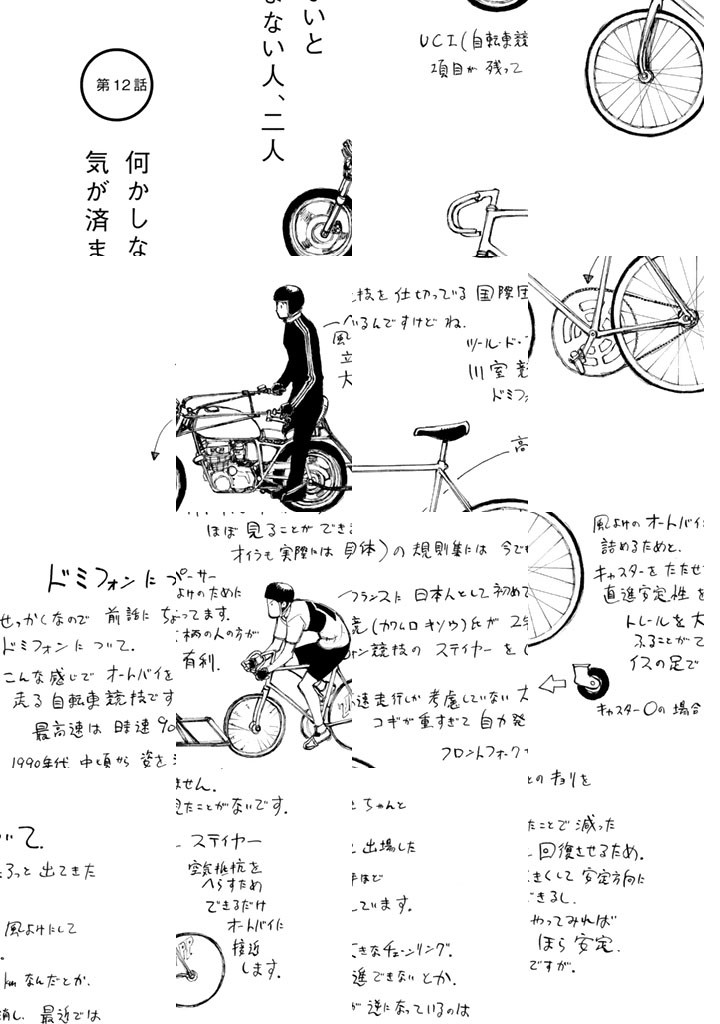 第12話
何かしな
気が済ま
いと
ない人、二人
UCI(自転車競
項目が残って
風
立
大
技を仕切っている国際団
いるんですけどね。
ツール・ド・
川室競
ドミフォ
高
ドミフォンに
せっかくなので 前話に ちょ
ドミフォンについて。
こんな感じで オートバイを
走る自転車競技です
最高速は 時速90
1990年代 中頃から 姿を
ほぼ見ることができ
オイラも実際には
ペーサー
よけのために
ってます。
体柄の人の方が
有利。
具体)の規則集には 今で
フランスに 日本人として初めて
ォン競技の ステイヤーを
速走行しか考慮していない
コギが重すぎて 自力発
フロントフォーク
風よけのオートバイ
詰めるためと、
キャスターをたたせ
直進安定性を
トレールを大
ふることがで
イスの足で
キャスター0の場合
いて。
ろっと 出てきた
風よけにして
kmなんだとか。
消し、最近では
ません。
見たことがないです。
ステイヤー
空気抵抗を
へらすため
できるだけ
オートバイに
接近
します。
ちゃんと
出場した
手ほど
しています。
きなチェーンリング。
進できないとか。
が 逆になっているのは
とのキョリを
たことで減った
回復させるため。
きくして 安定方向に
できるし、
やってみれば
ほら安定。
ですが。